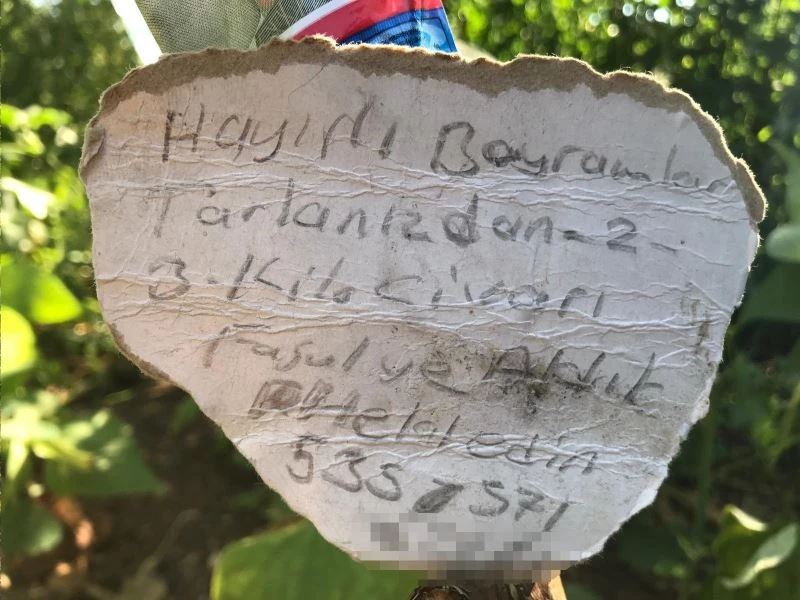 Hayırlı Bayramlar
Tarlanızdan-2-
3-Kilo Civarı
Fasulye Aldık
Hekledin
535 7 571